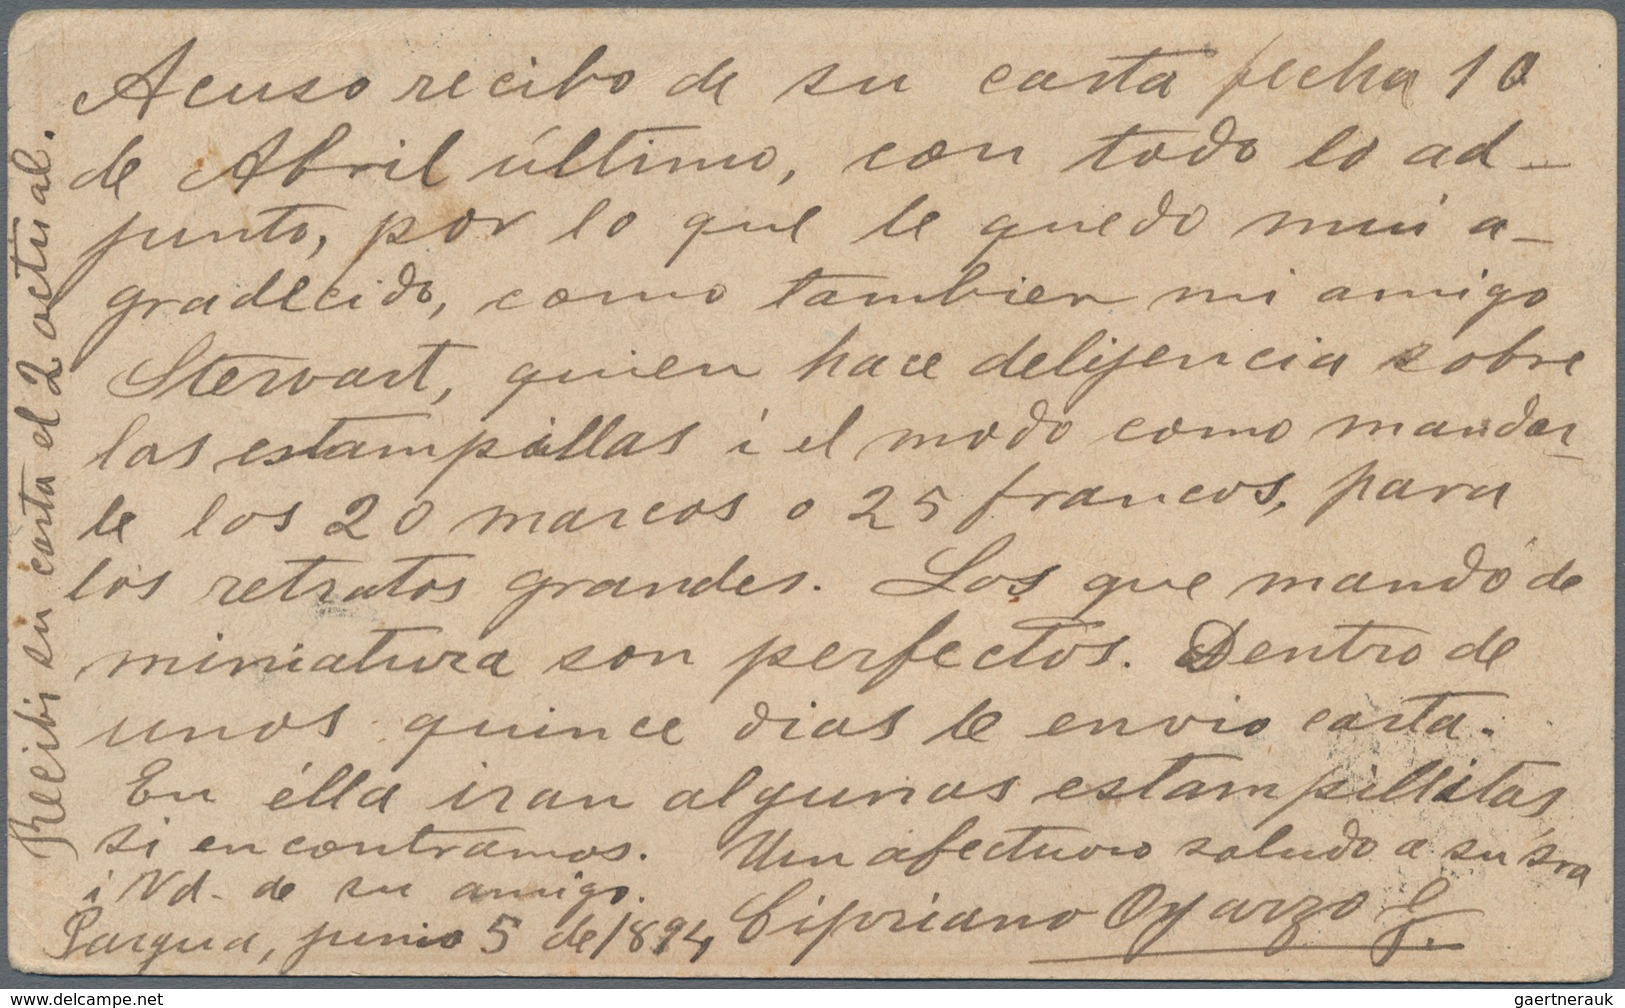 Acuso recibo de su carta fecha 10
de Abril último, con todo lo ad-
junto, por lo que le quedo mui a-
gradecido, como tambien mi amigo
Stewart, quien hace delijencia sobre
las estampillas i el modo como mandar-
le los 20 marcos o 25 francos, para
los retratos grandes. Los que mandó de
miniatura son perfectos. Dentro de
unos quince dias le envio carta.
En élla iran algunas estampillitas
si encontramos. Un afectuoso saludo a su sra
i Vd. de su amigo.
Cipriano Oyarzo G.
Pargua, junio 5 de 1894
Recibi su carta el 2 actual.
delcampe.net
gaertnerauk